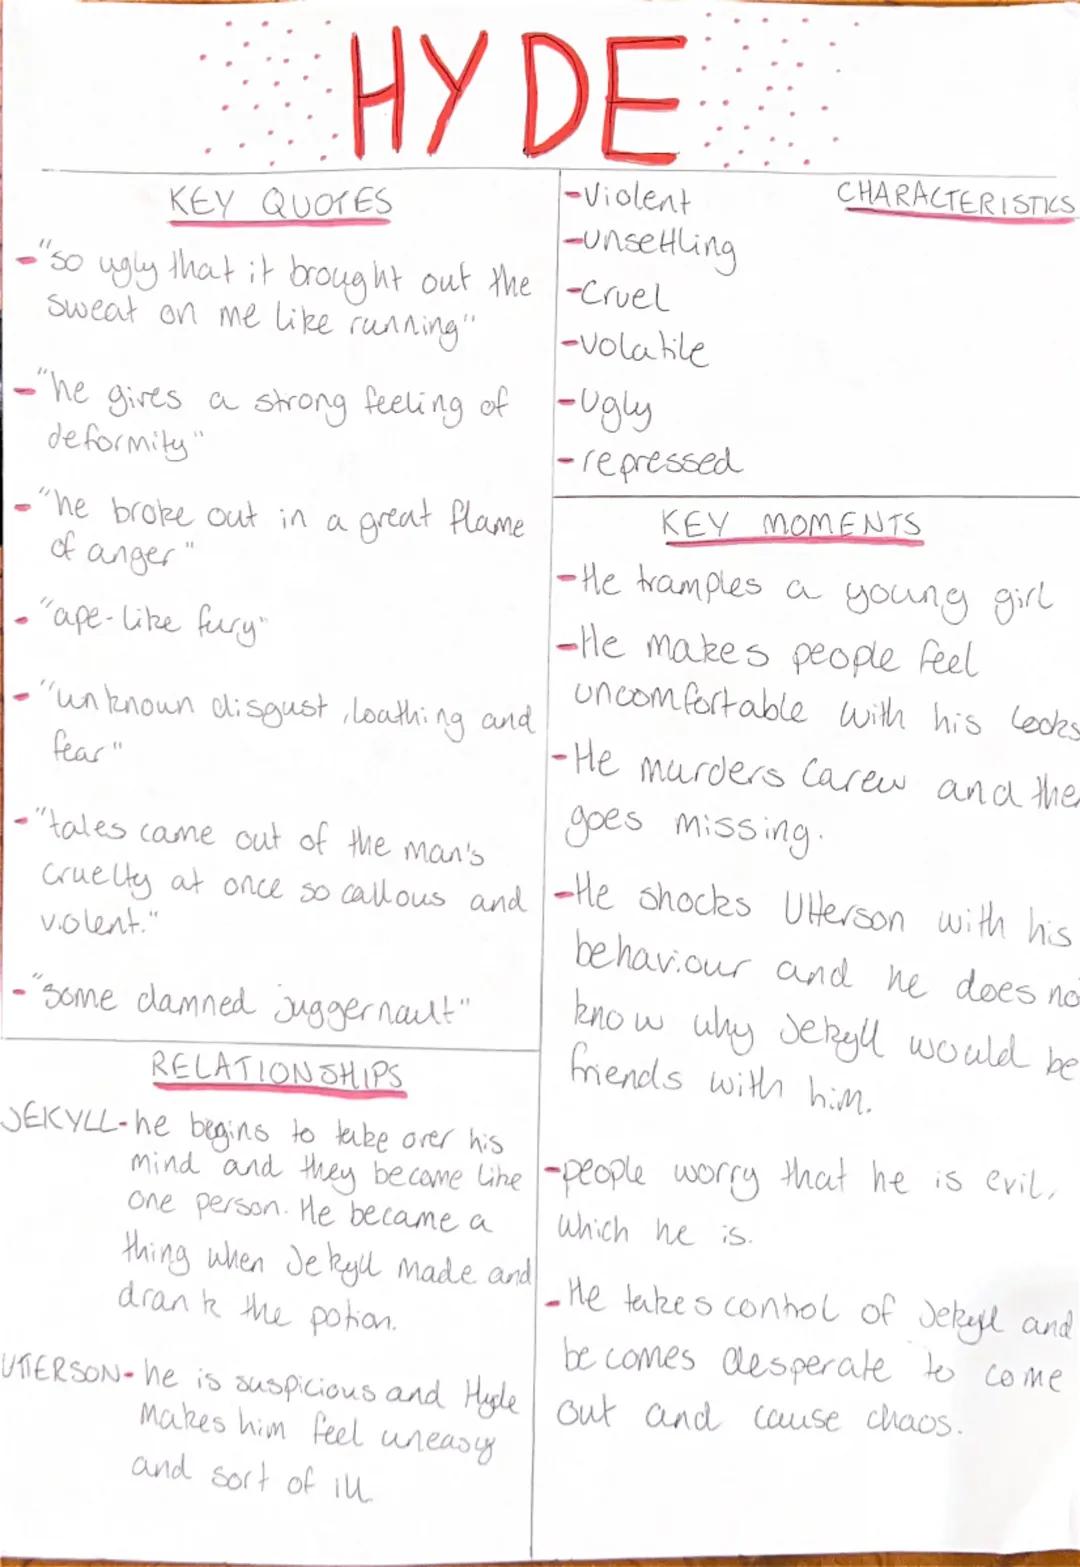 HYDE
KEY QUOTES
-"so ugly that it brought out the
sweat on me like running"
-"he gives a strong feeling of
deformity"
-"he broke out in a great flame
of anger"
-"ape-like fury"
-"unknown disgust, loathing and
fear"
-"tales came out of the man's
cruelty at once so callous and
violent."
-"some damned juggernault"
RELATIONSHIPS
JEKYLL-he begins to take over his
mind and they become like
one person. He became a
thing when Jekyll made and
drank the potion.
UTTERSON-he is suspicious and Hyde
makes him feel uneasy
and sort of ill
CHARACTERISTICS
-Violent
-unsettling
-Cruel
-volatile
-Ugly
-repressed
KEY MOMENTS
-He tramples a young girl
-He makes people feel
uncomfortable with his looks
-He murders Carew and the
goes missing.
-He shocks Utterson with his
behaviour and he does no
know why Jekyll would be
friends with him.
-people worry that he is evil,
which he is.
-He takes control of Jekyll and
becomes desperate to come
out and cause chaos.